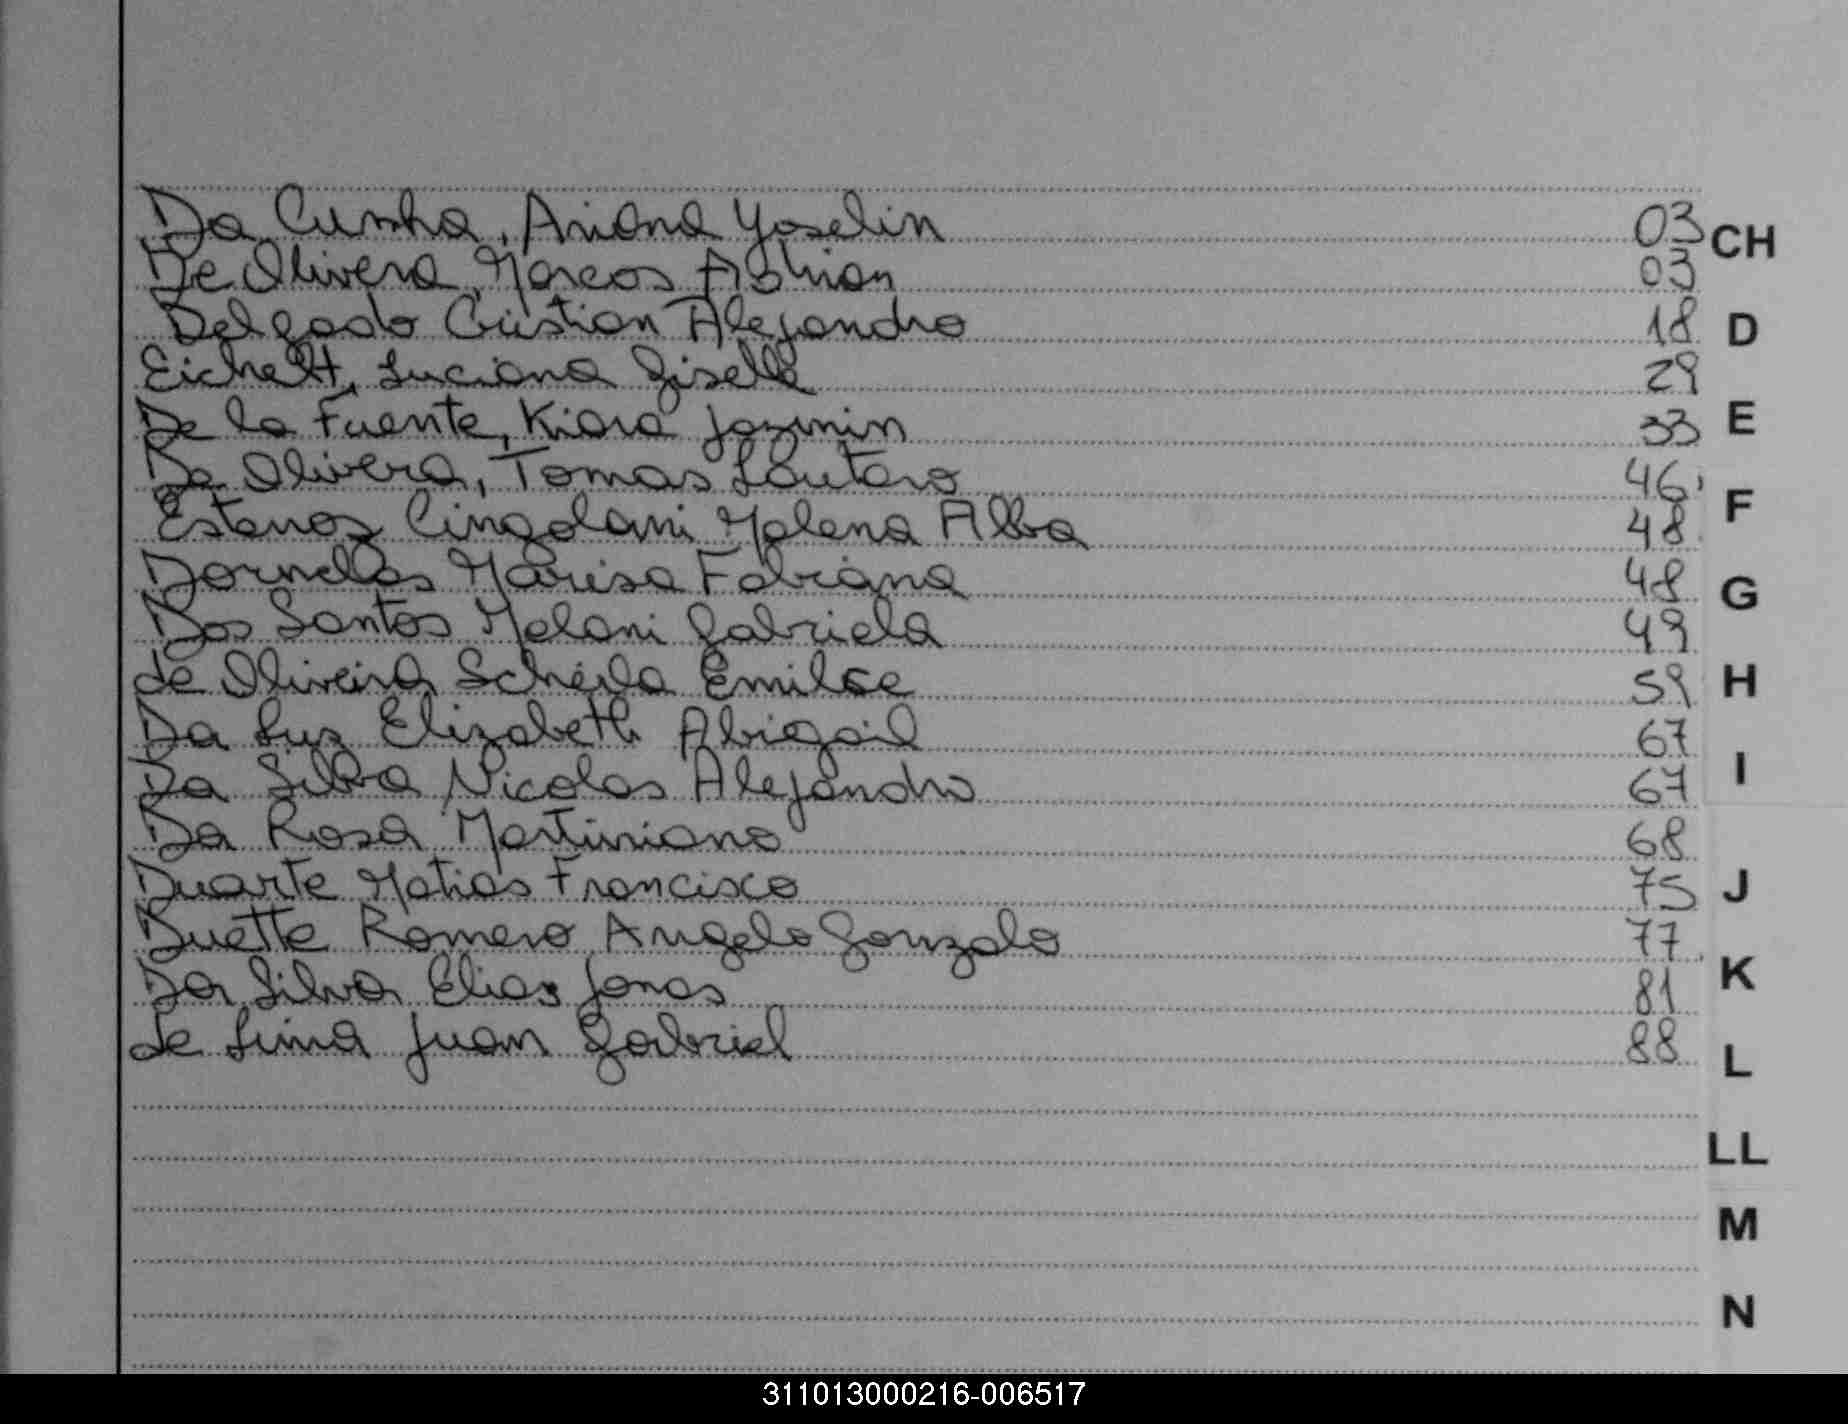 Da Cunha, Ariana Yoselin 03
De Olivera, Marcos Adrian 03
Delgado Cristian Alejandro 18
Eichelt, Luciana Gisella 29
De la Fuente, Kiara Jazmin 33
De Olivera, Tomas Lautaro 46
Cingolani Malena Alba 48
Dornelles Marisa Fabiana 48
Dos Santos Melani Gabriela 49
de Oliveira Emilce 59
Da Luz Elizabeth Abigail 67
Da Silva Nicolas Alejandro 67
Da Rosa Martiniano 68
Duarte Matias Francisco 75
Duette Romero Angelo Gonzalo 77
Da Silva Elias Jonas 81
de Lima Juan Gabriel 88
CH
D
E
F
G
H
I
J
K
L
LL
M
N
311013000216-006517